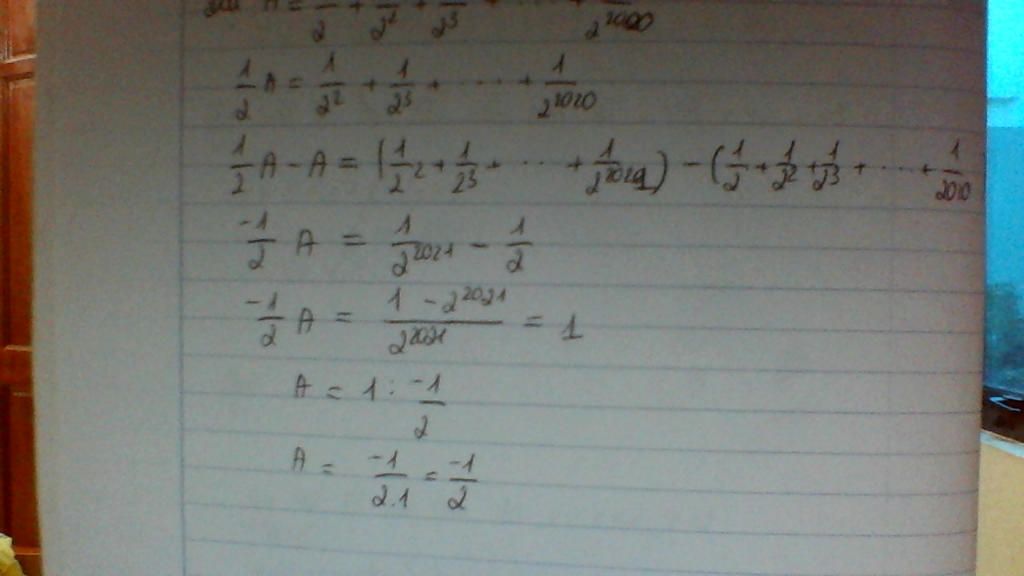 A = 1/2 + 1/2² + 1/2³ + ... + 1/2²⁰²⁰
1/2 A = 1/2² + 1/2³ + ... + 1/2²⁰²⁰
1/2 A - A = (1/2² + 1/2³ + ... + 1/2²⁰²¹) - (1/2 + 1/2² + 1/2³ + ... + 1/2020
-1/2 A = 1/2²⁰²¹ - 1/2
-1/2 A = 1 - 2²⁰²¹/2²⁰²¹ = 1
A = 1 : -1/2
A = -1/2.1 = -1/2